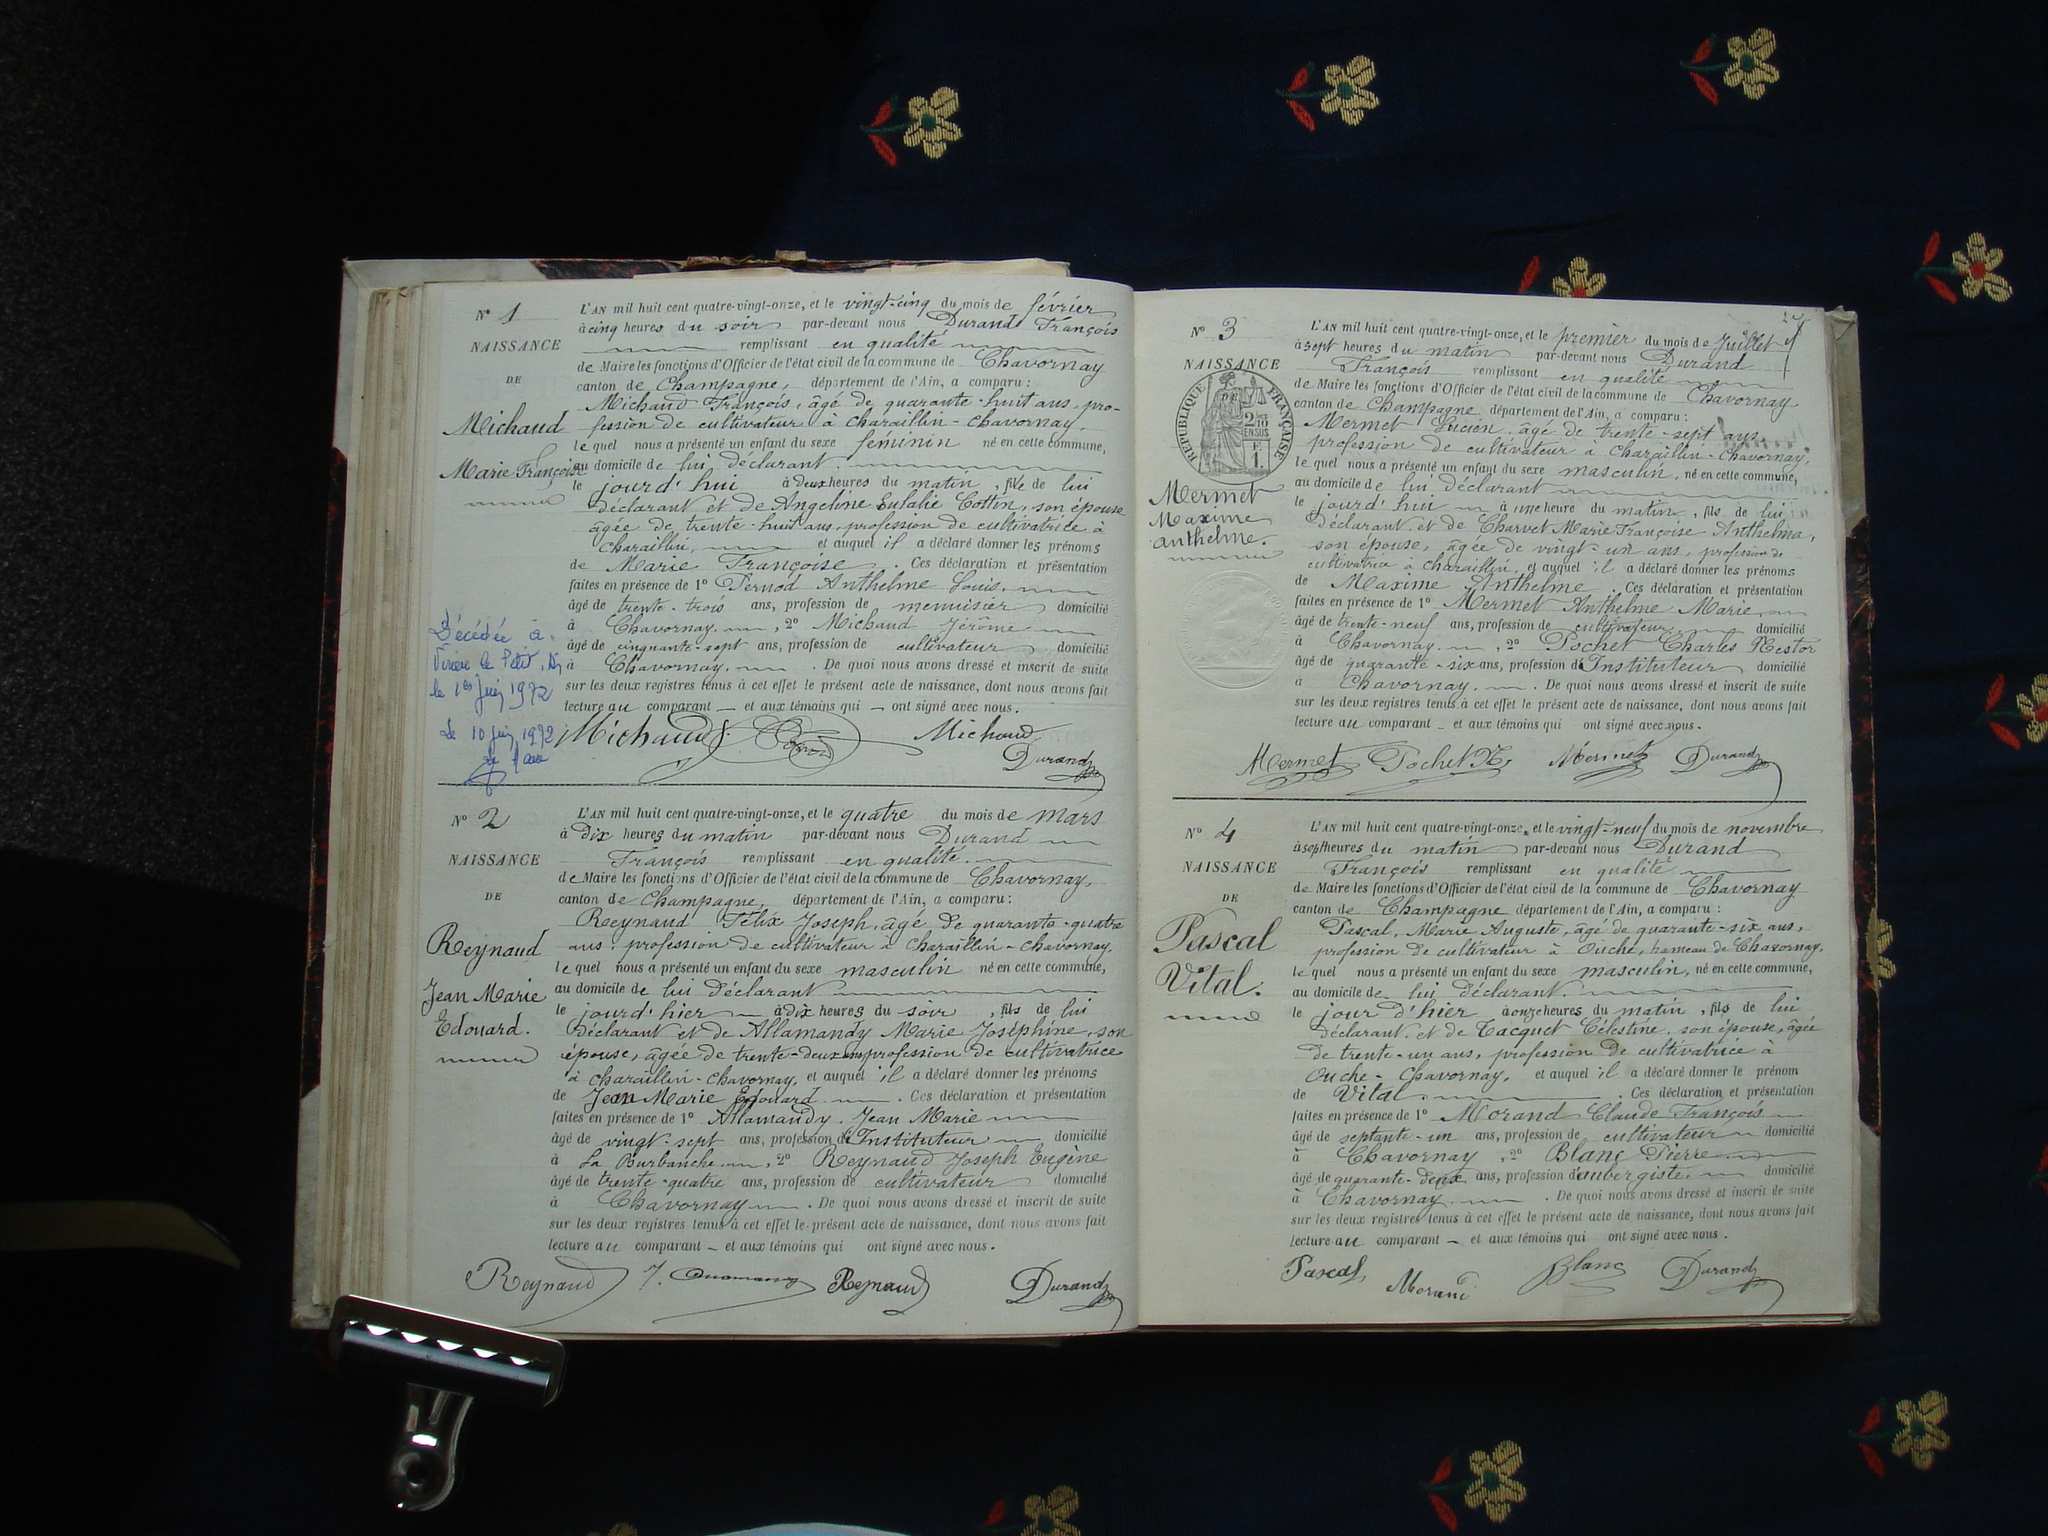 N° 1
NAISSANCE
DE
Michaud
Marie Françoise
L'AN mil huit cent quatre-vingt-onze, et le vingt-cinq du mois de février
à cinq heures du soir par-devant nous Durand François
remplissant en qualité
de Maire les fonctions d'Officier de l'état civil de la commune de Chavornay
canton de Champagne, département de l'Ain, a comparu :
Michaud François, âgé de quarante-huit ans, pro-
fession de cultivateur à Charaillin-Chavornay,
lequel nous a présenté un enfant du sexe féminin né en cette commune,
au domicile de lui déclarant.
le jourd'hui à deux heures du matin, fille de lui
déclarant et de Angeline Eulalie Cottin, son épouse
âgée de trente-huit ans, profession de cultivatrice à
Charaillin, et auquel il a déclaré donner les prénoms
de Marie Françoise. Ces déclaration et présentation
faites en présence de 1° Pernod Anthelme Louis,
âgé de trente-trois ans, profession de menuisier domicilié
à Chavornay, 2° Michaud Jérôme
âgé de cinquante-sept ans, profession de cultivateur domicilié
à Chavornay. De quoi nous avons dressé et inscrit de suite
sur les deux registres tenus à cet effet le présent acte de naissance, dont nous avons fait
lecture au comparant — et aux témoins qui — ont signé avec nous.
Décédée à
Virieu le Petit, Ain
le 1er Juin 1972
Le 10 juin 1972
Michaud Michaud
Durand
N° 2
NAISSANCE
DE
Reynaud
Jean Marie
Edouard.
L'AN mil huit cent quatre-vingt-onze, et le quatre du mois de mars
à dix heures du matin par-devant nous Durand
François remplissant en qualité
de Maire les fonctions d'Officier de l'état civil de la commune de Chavornay,
canton de Champagne, département de l'Ain, a comparu :
Reynaud Félix Joseph, âgé de quarante-quatre
ans, profession de cultivateur à Charaillin-Chavornay,
lequel nous a présenté un enfant du sexe masculin né en cette commune,
au domicile de lui déclarant
le jourd'hier à dix heures du soir, fils de lui
déclarant et de Allamandy Marie Joséphine, son
épouse, âgée de trente-deux ans profession de cultivatrice
à Charaillin-Chavornay, et auquel il a déclaré donner les prénoms
de Jean Marie Edouard. Ces déclaration et présentation
faites en présence de 1° Allamandy Jean Marie
âgé de vingt-sept ans, profession d'Instituteur domicilié
à La Burbanche, 2° Reynaud Joseph Eugène
âgé de trente-quatre ans, profession de cultivateur domicilié
à Chavornay. De quoi nous avons dressé et inscrit de suite
sur les deux registres tenus à cet effet le présent acte de naissance, dont nous avons fait
lecture au comparant — et aux témoins qui ont signé avec nous.
Reynaud Reynaud Durand
N° 3
NAISSANCE
DE
RÉPUBLIQUE FRANÇAISE
2/10 EN SUS
1 F.
Mermet
Maxime
Anthelme.
L'AN mil huit cent quatre-vingt-onze, et le premier du mois de Juillet
à sept heures du matin par-devant nous Durand
François remplissant en qualité
de Maire les fonctions d'Officier de l'état civil de la commune de Chavornay
canton de Champagne département de l'Ain, a comparu :
Mermet Lucien, âgé de trente-sept ans,
profession de cultivateur à Charaillin-Chavornay,
lequel nous a présenté un enfant du sexe masculin, né en cette commune,
au domicile de lui déclarant
le jourd'hui à une heure du matin, fils de lui
déclarant et de Charvet Marie Françoise Anthelma,
son épouse, âgée de vingt-un ans, profession de
cultivatrice à Charaillin, et auquel il a déclaré donner les prénoms
de Maxime Anthelme. Ces déclaration et présentation
faites en présence de 1° Mermet Anthelme Marie,
âgé de trente-neuf ans, profession de cultivateur domicilié
à Chavornay, 2° Pochet Charles Nestor
âgé de quarante-six ans, profession d'Instituteur domicilié
à Chavornay. De quoi nous avons dressé et inscrit de suite
sur les deux registres tenus à cet effet le présent acte de naissance, dont nous avons fait
lecture au comparant — et aux témoins qui ont signé avec nous.
Mermet Pochet N. Mermet Durand
N° 4
NAISSANCE
DE
Pascal
Vital.
L'AN mil huit cent quatre-vingt-onze, et le vingt-neuf du mois de novembre
à sept heures du matin par-devant nous Durand
François remplissant en qualité
de Maire les fonctions d'Officier de l'état civil de la commune de Chavornay
canton de Champagne département de l'Ain, a comparu :
Pascal, Marie Auguste, âgé de quarante-six ans,
profession de cultivateur à Ouche, hameau de Chavornay,
lequel nous a présenté un enfant du sexe masculin, né en cette commune,
au domicile de lui déclarant.
le jour d'hier à onze heures du matin, fils de lui
déclarant et de Tacquet Célestine, son épouse, âgée
de trente-un ans, profession de cultivatrice à
Ouche-Chavornay, et auquel il a déclaré donner le prénom
de Vital. Ces déclaration et présentation
faites en présence de 1° Morand Claude François
âgé de septante-un ans, profession de cultivateur domicilié
à Chavornay, 2° Blanc Pierre
âgé de quarante-deux ans, profession d'aubergiste domicilié
à Chavornay. De quoi nous avons dressé et inscrit de suite
sur les deux registres tenus à cet effet le présent acte de naissance, dont nous avons fait
lecture au comparant — et aux témoins qui ont signé avec nous.
Pascal Morand Blanc Durand